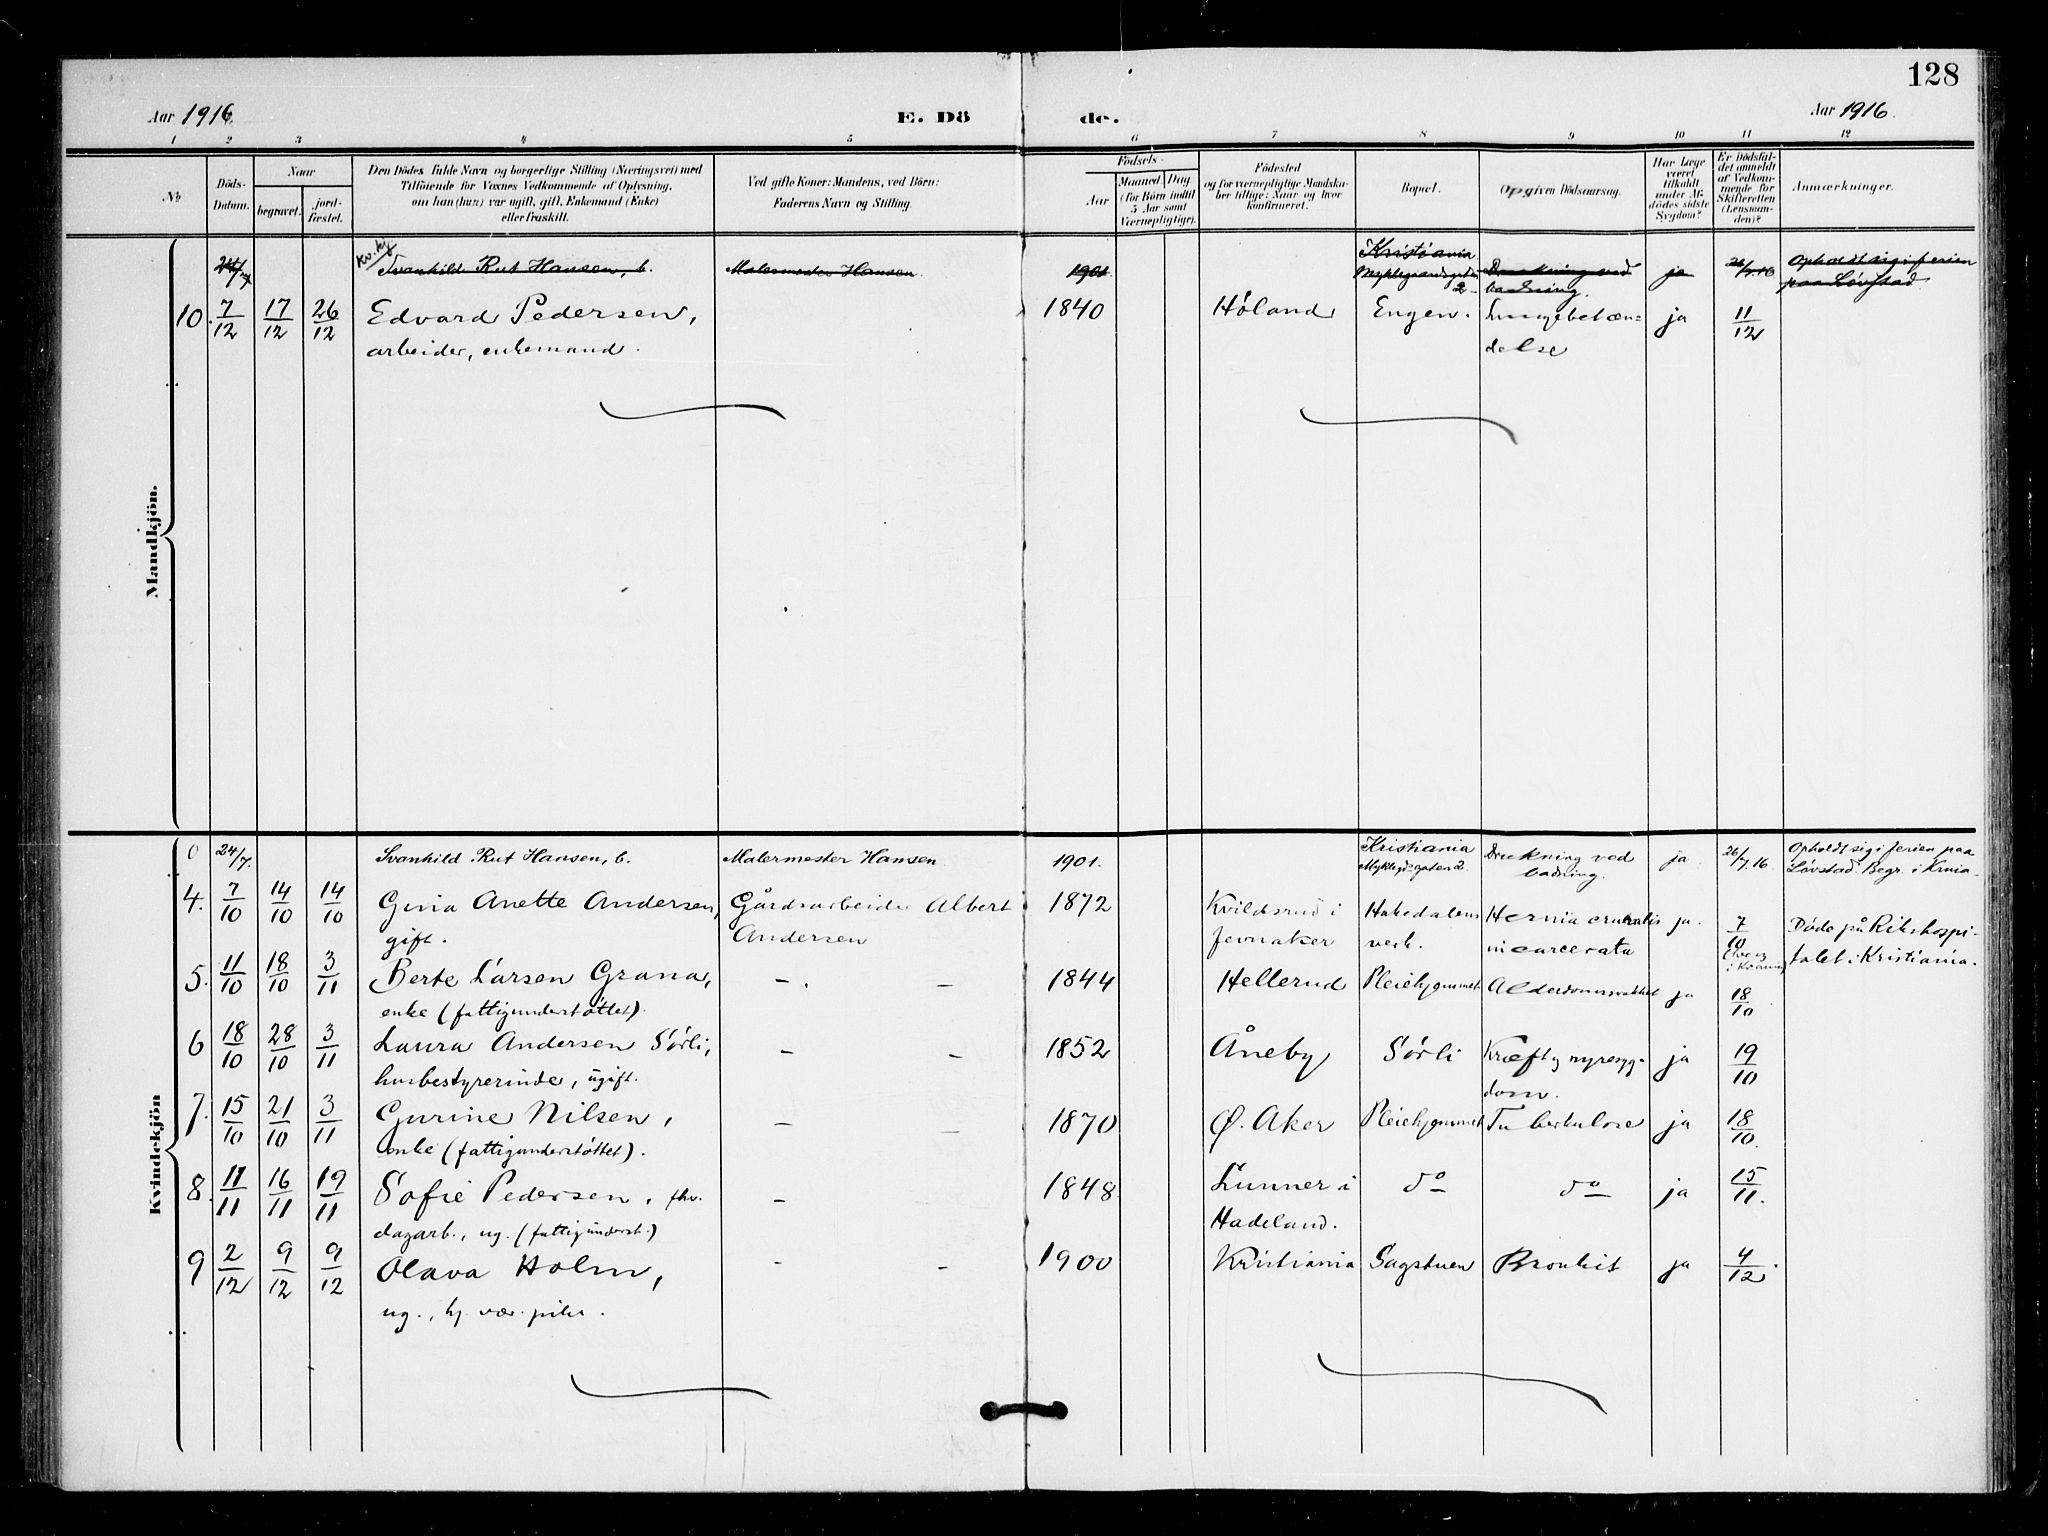 128
Aar 1916. E. Dö de. Aar 1916.
1 2 3 4 5 6 7 8 9 10 11 12
No
Döds-
Datum.
Naar
begravet.
jord-
fæstet.
Den Dödes fulde Navn og borgerlige Stilling (Næringsvei) med
Tilföiende för Voxnes Vedkommende af Oplysning,
om han (hun) var ugift, gift, Enkemand (Enke)
eller fraskilt.
Ved gifte Koner: Mandens, ved Börn:
Faderens Navn og Stilling.
Födsels-
Aar
Maaned Dag
(for Børn indtil
5 Aar samt
Værnepligtige).
Födested
og for værnepligtige Mandska-
ber tillige: Naar og hvor
konfirmeret.
Bopæl.
Opgiven Dödsaarsag.
Har Læge
været
tilkaldt
under Af-
dödes sidste
Sygdom?
Er Dödsfal-
det anmeldt
af Vedkom-
mende for
Skifteretten
(Lensman-
den)?
Anmærkninger.
Mandkjön.
Kv.kj
24/7 Svanhild Rut Hansen, b. Malermester Hansen. 1901 Kristiania Drukning ved ja 26/7.16 Opholdt sig i ferien
2 badning. paa Løvstad
10. 7/12 17/12 26/12 Edvard Pedersen, 1840 Høland Engen. Lungebetæn- ja 11/12
arbeider, enkemand. delse
Kvindekjön
0 24/7. Svanhild Rut Hansen, b. Malermester Hansen. 1901. Kristiania Drukning ved ja. 26/7.16 Opholdt sig i ferien paa
badning. Løvstad. Begr. i Krnia.
4. 7/10 14/10 14/10 Gina Anette Andersen, Gårdsarbeider Albert 1872 Kvildsrud i Hakedalens Hernia cruralis ja. 7/10 Døde på Rikshospi-
gift. Andersen Jevnaker verk. incarcerata talet i Kristiania.
5. 11/10 18/10 3/11 Berte Larsen Grana, - . - 1844 Hellerud Pleiehjemmet Alderdomssvakhet ja 18/10.
enke (fattigunderstøttet).
6 18/10 28/10 3/11 Laura Andersen Sørli, - - 1852 Åneby Sørli Kræft og nyresyg- ja 19/10
husbestyrerinde, ugift. dom.
7. 15/10 21/10 3/11 Gurine Nilsen, - - 1870 Ø. Aker Pleiehjemmet Tuberkulose ja 18/10.
enke (fattigunderstøttet).
8. 11/11 16/11 19/11 Sofie Pedersen, fhv. - 1848 Lunner i do do ja 15/11.
dagarb., ug. (fattigunderst.) Hadeland.
9 2/12 9/12 9/12 Olava Holm, - - 1900 Kristiania Sagstuen Bronkit ja 4/12.
ug., hj. vær. pike.